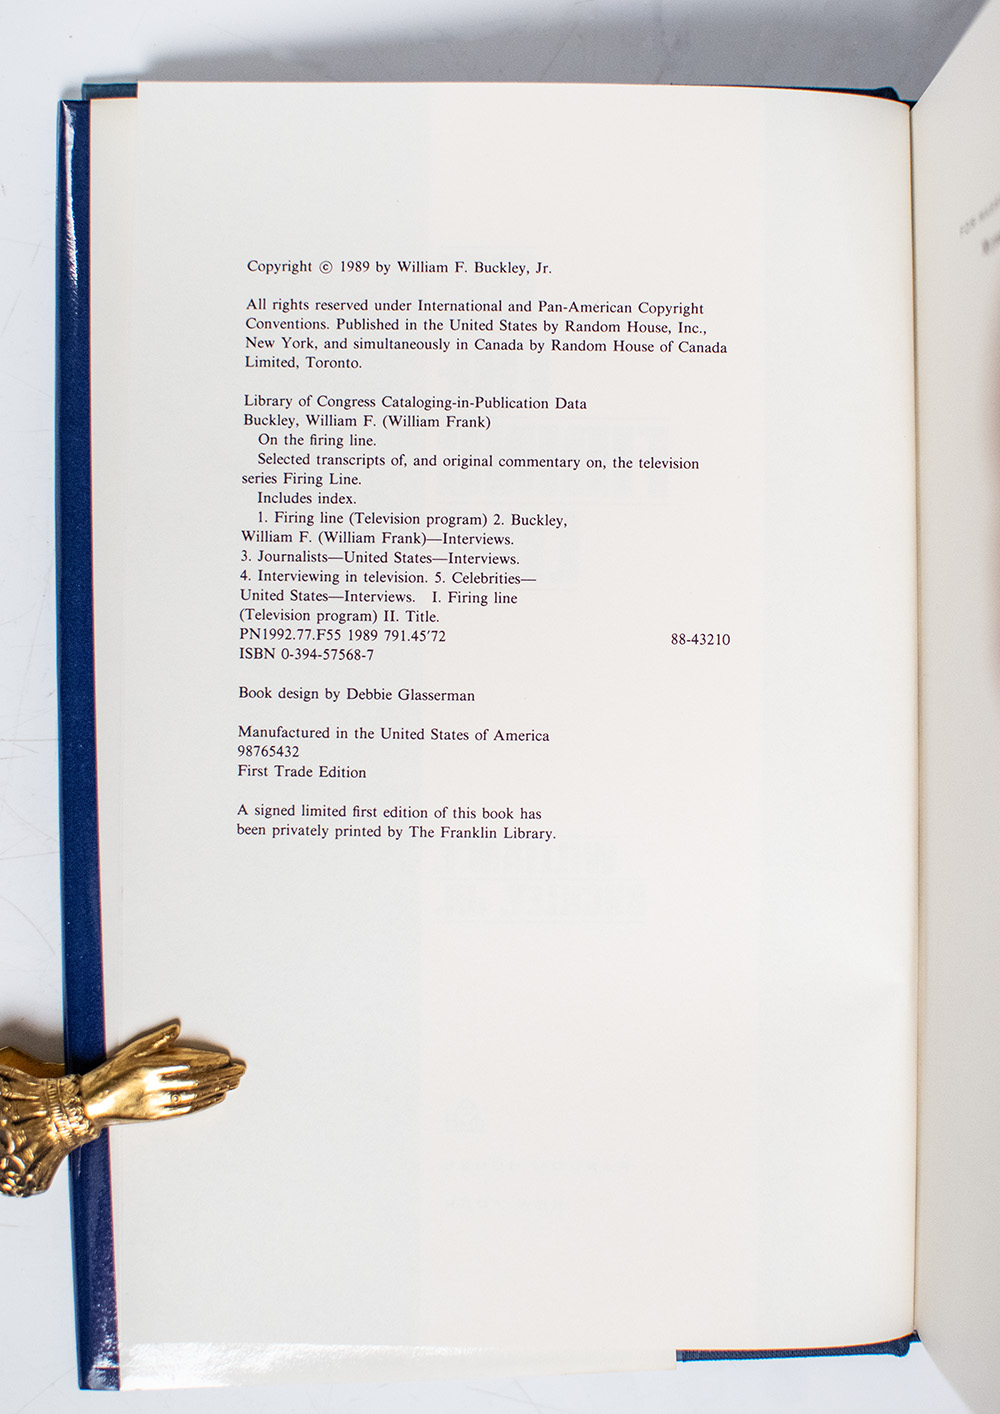 Copyright © 1989 by William F. Buckley, Jr.
All rights reserved under International and Pan-American Copyright
Conventions. Published in the United States by Random House, Inc.,
New York, and simultaneously in Canada by Random House of Canada
Limited, Toronto.
Library of Congress Cataloging-in-Publication Data
Buckley, William F. (William Frank)
On the firing line.
Selected transcripts of, and original commentary on, the television
series Firing Line.
Includes index.
1. Firing line (Television program) 2. Buckley,
William F. (William Frank)—Interviews.
3. Journalists—United States—Interviews.
4. Interviewing in television. 5. Celebrities—
United States—Interviews. I. Firing line
(Television program) II. Title.
PN1992.77.F55 1989 791.45'72 88-43210
ISBN 0-394-57568-7
Book design by Debbie Glasserman
Manufactured in the United States of America
98765432
First Trade Edition
A signed limited first edition of this book has
been privately printed by The Franklin Library.
FOR